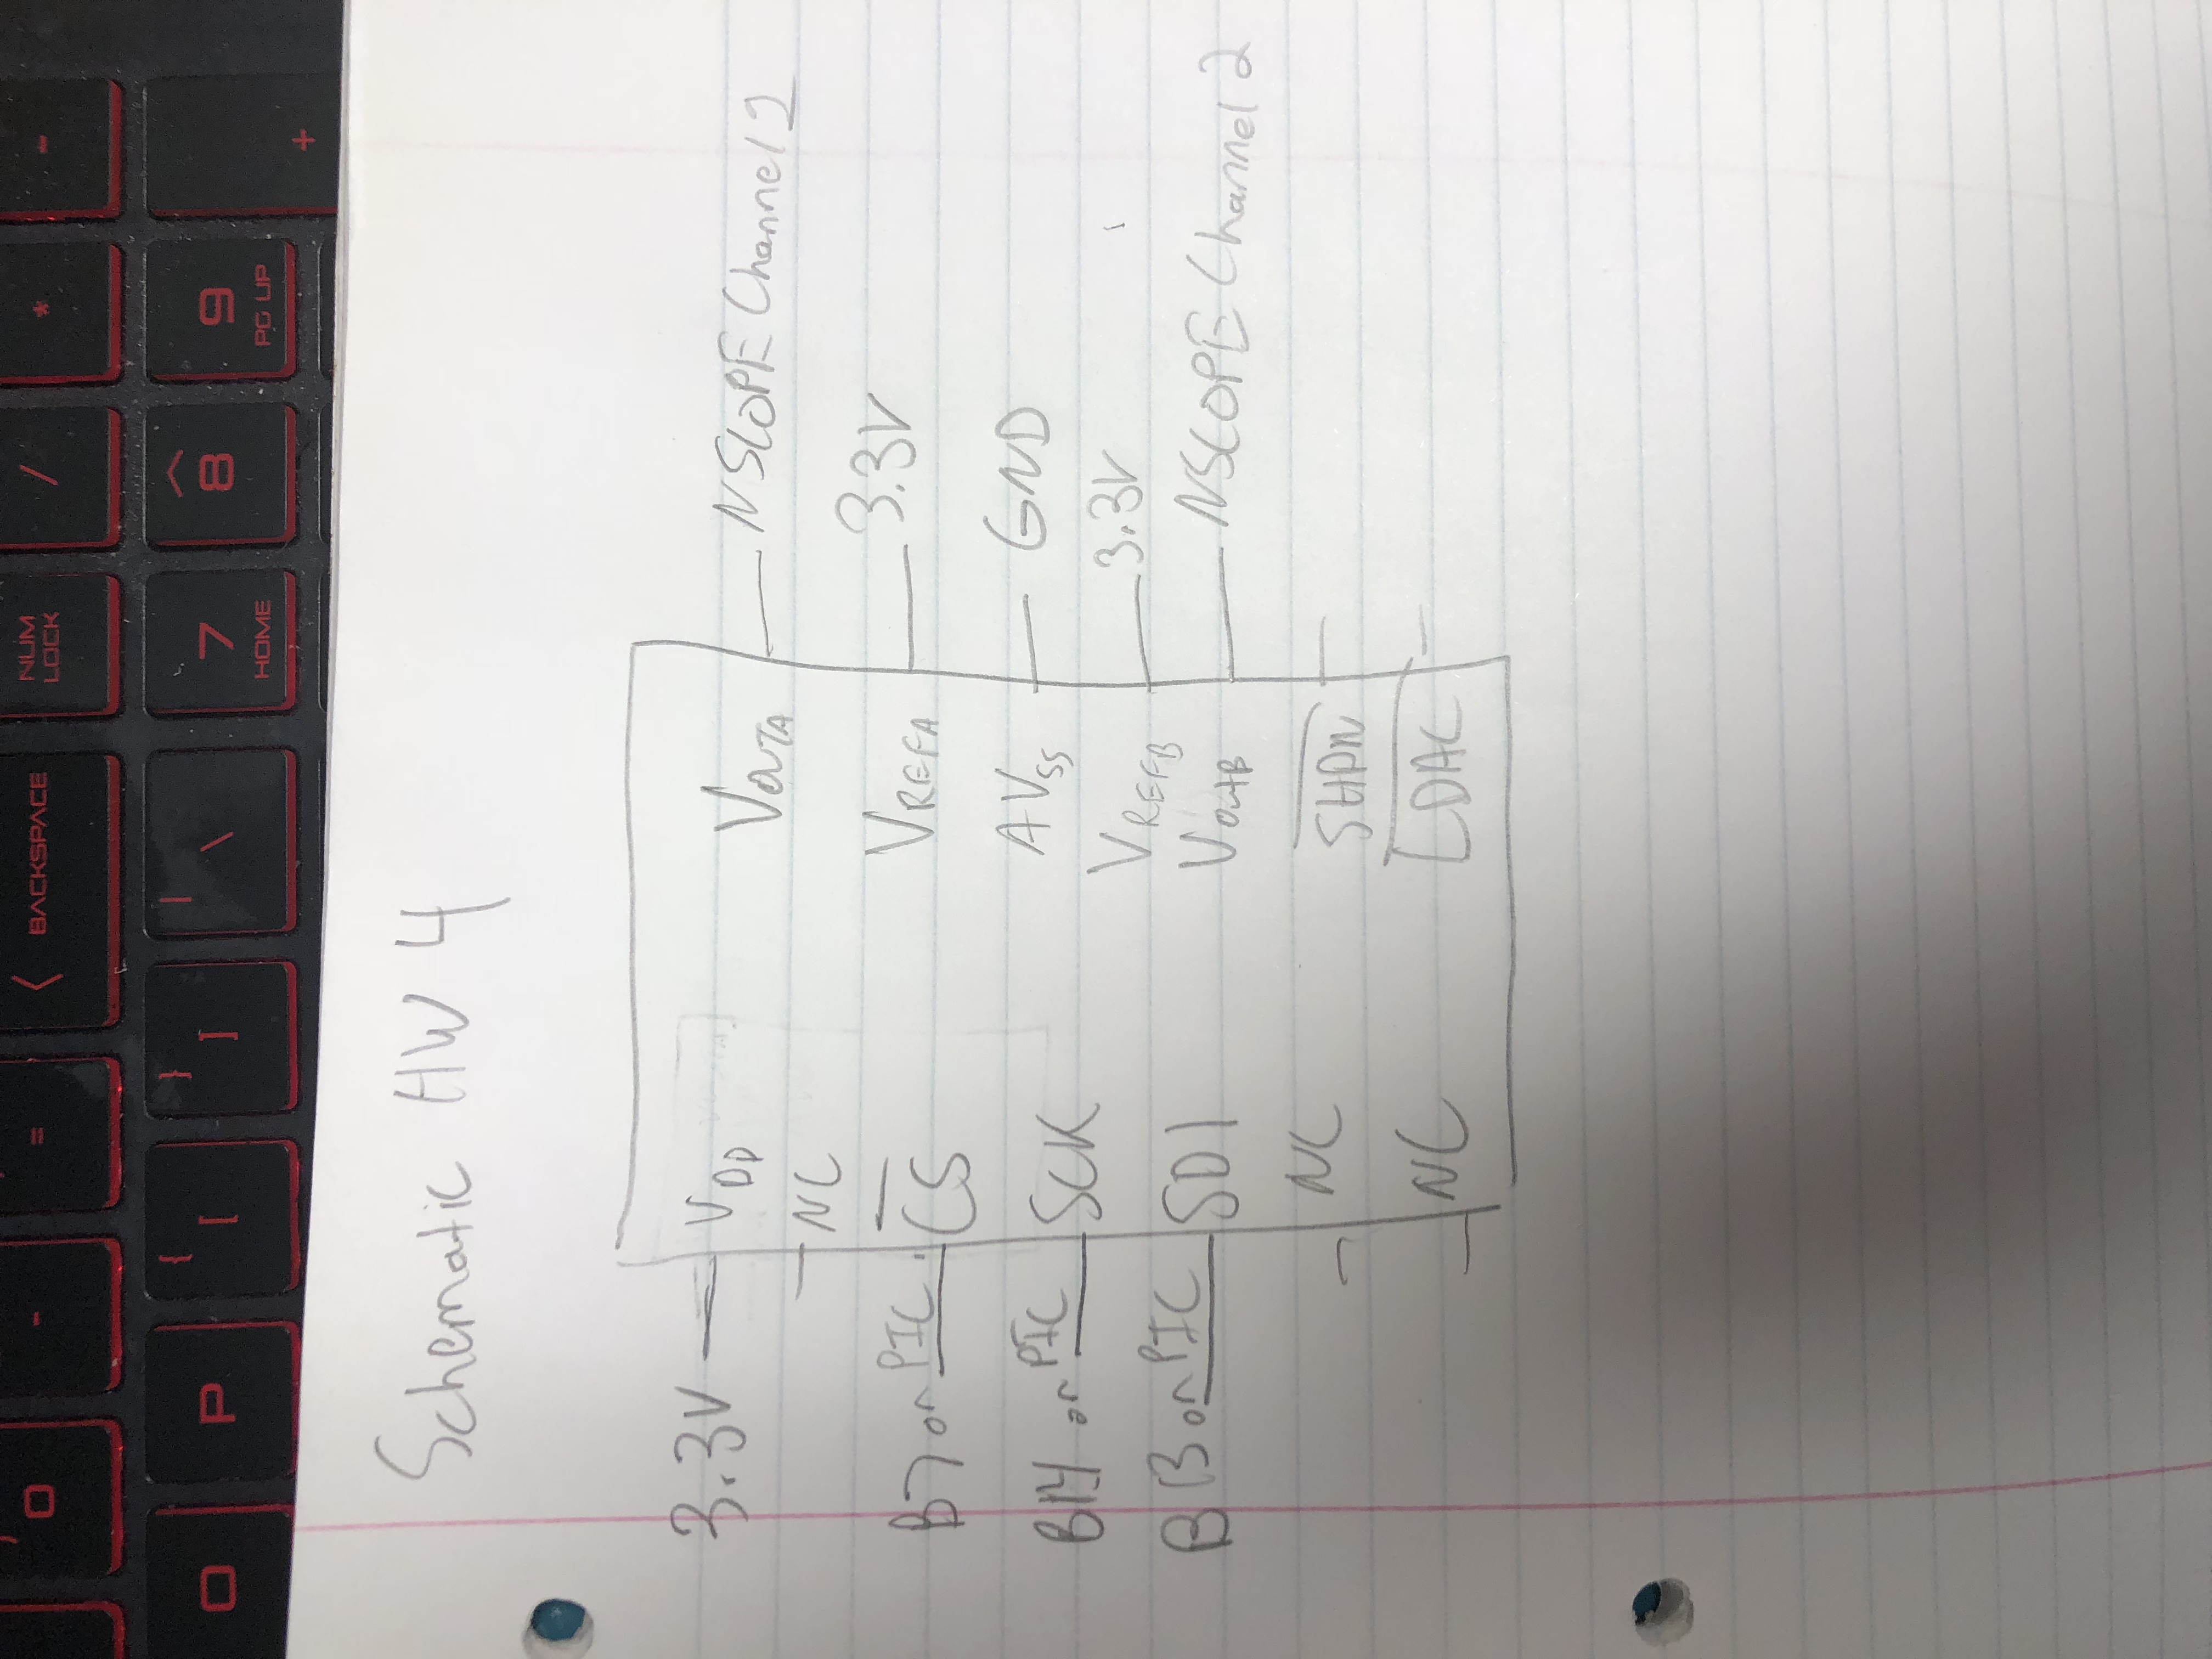 0 - = BACKSPACE NUM LOCK / * -
O P { [ } ] | \ 7 HOME 8 9 PG UP +
Schematic HW 4
3.3V VDD
NC
B7 on PIC CS
B14 on PIC SCK
B13 on PIC SDI
NC
NC
VOUTA NSCOPE Channel 2
VREFA 3.3V
AVSS GND
VREFB 3.3V
VOutB NSCOPE Channel 2
SHDN
LDAC